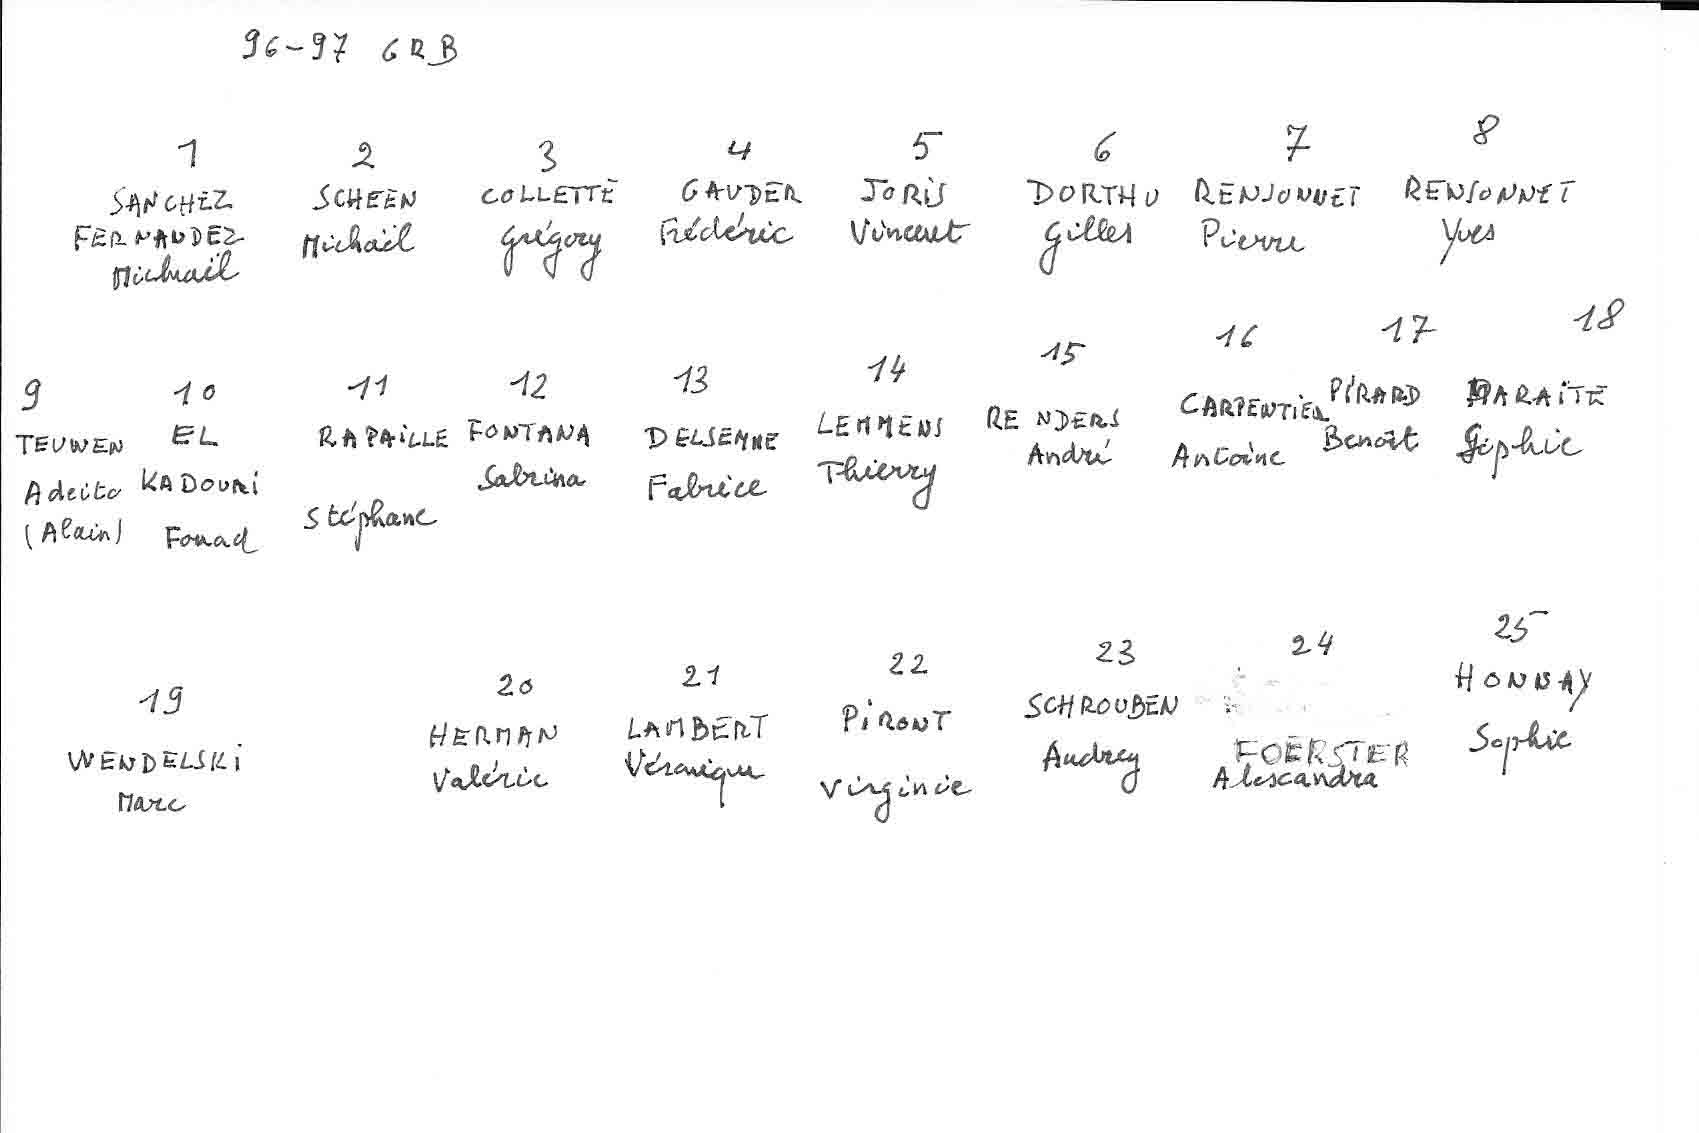 96-97 6RB
1 2 3 4 5 6 7 8
SANCHEZ SCHEEN COLLETTE GAUDER JORIS DORTHU RENSONNET RENSONNET
FERNANDEZ Michaël Grégory Frédéric Vincent Gilles Pierre Yves
Michaël
9 10 11 12 13 14 15 16 17 18
TEUWEN EL RAPAILLE FONTANA DELSEMME LEMMENS RENDERS CARPENTIER PIRARD PARAITE
Adeito KADOURI Stéphane Sabrina Fabrice Thierry André Antoine Benoît Sophie
(Alain) Fouad
19 20 21 22 23 24 25
WENDELSKI HERMAN LAMBERT PIRONT SCHROUBEN FOERSTER HONNAY
Marc Valérie Véronique Virginie Audrey Alexandra Sophie